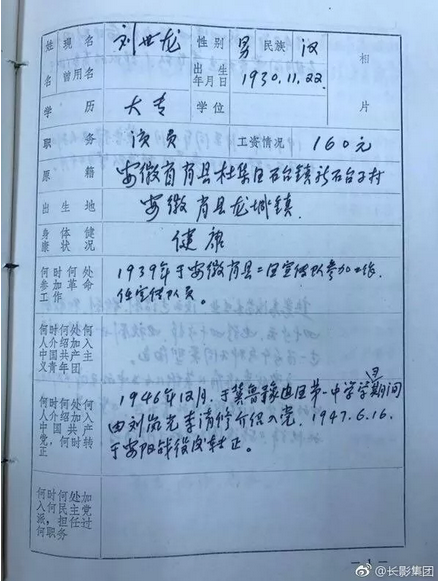 姓名 现名 刘世龙 性别 男 民族 汉 相片
曾用名 出生年月日 1930.11.22.
学历 大专 学位
职务 演员 工资情况 160元
原籍 安徽省萧县杜集区石台镇 石台子村
出生地 安徽萧县龙城镇
身体健康状况 健康
何时何处参加革命工作 1939年于安徽省萧县二区宣传队参加工作,
任宣传队员。
何时何处何人介绍加入中国共产主义青年团
何时何处何人介绍加入中国共产党,何时转正 1946年12月,于冀鲁豫边区第一中学学习期间
由刘 李清修介绍入党,1947.6.16.
于安阳战役后转正。
何时何处加入何民主党派,担任过何职务
— 1 —
@长影集团